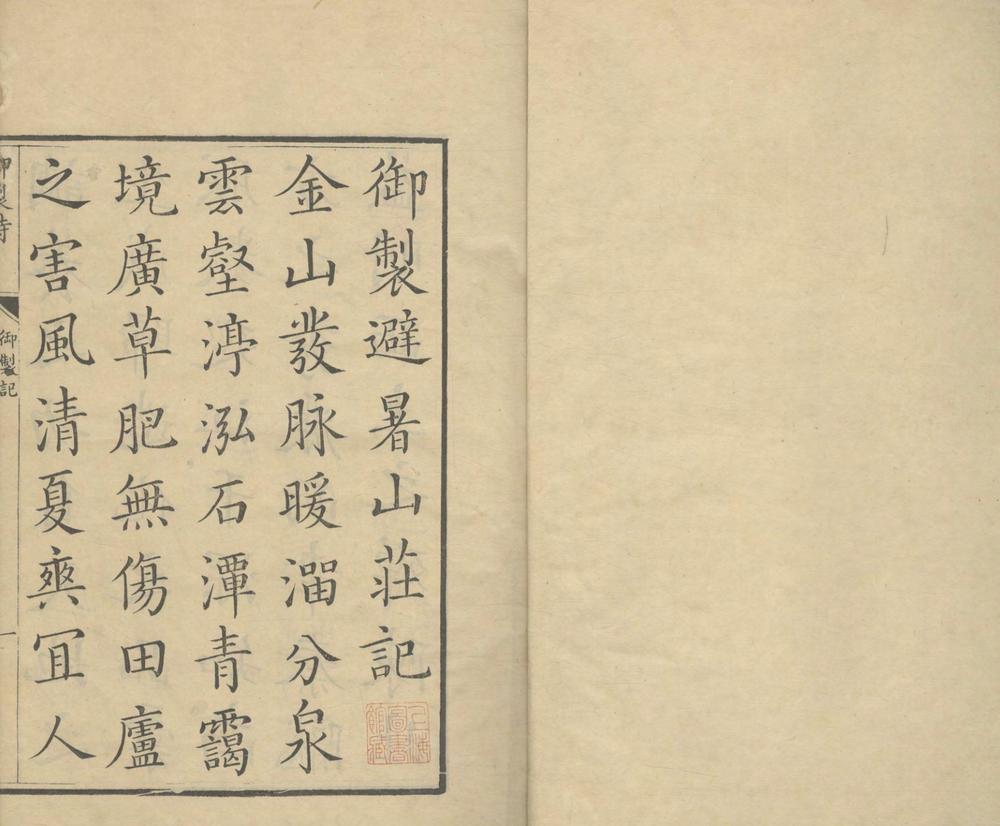 御製避暑山莊記
金山發脉暖溜分泉
雲壑渟泓石潭青靄
境廣草肥無傷田廬
之害風清夏爽宜人
御製詩
御製記
一
上海圖書館藏